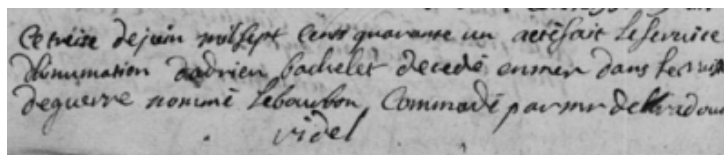 Ce treise de juin mil sept cens quarante un a eté fait le service
d'inumation d'adrien bachelet decedé en mer dans le
de guerre nommé le bourbon, Commadé par mr de
videl